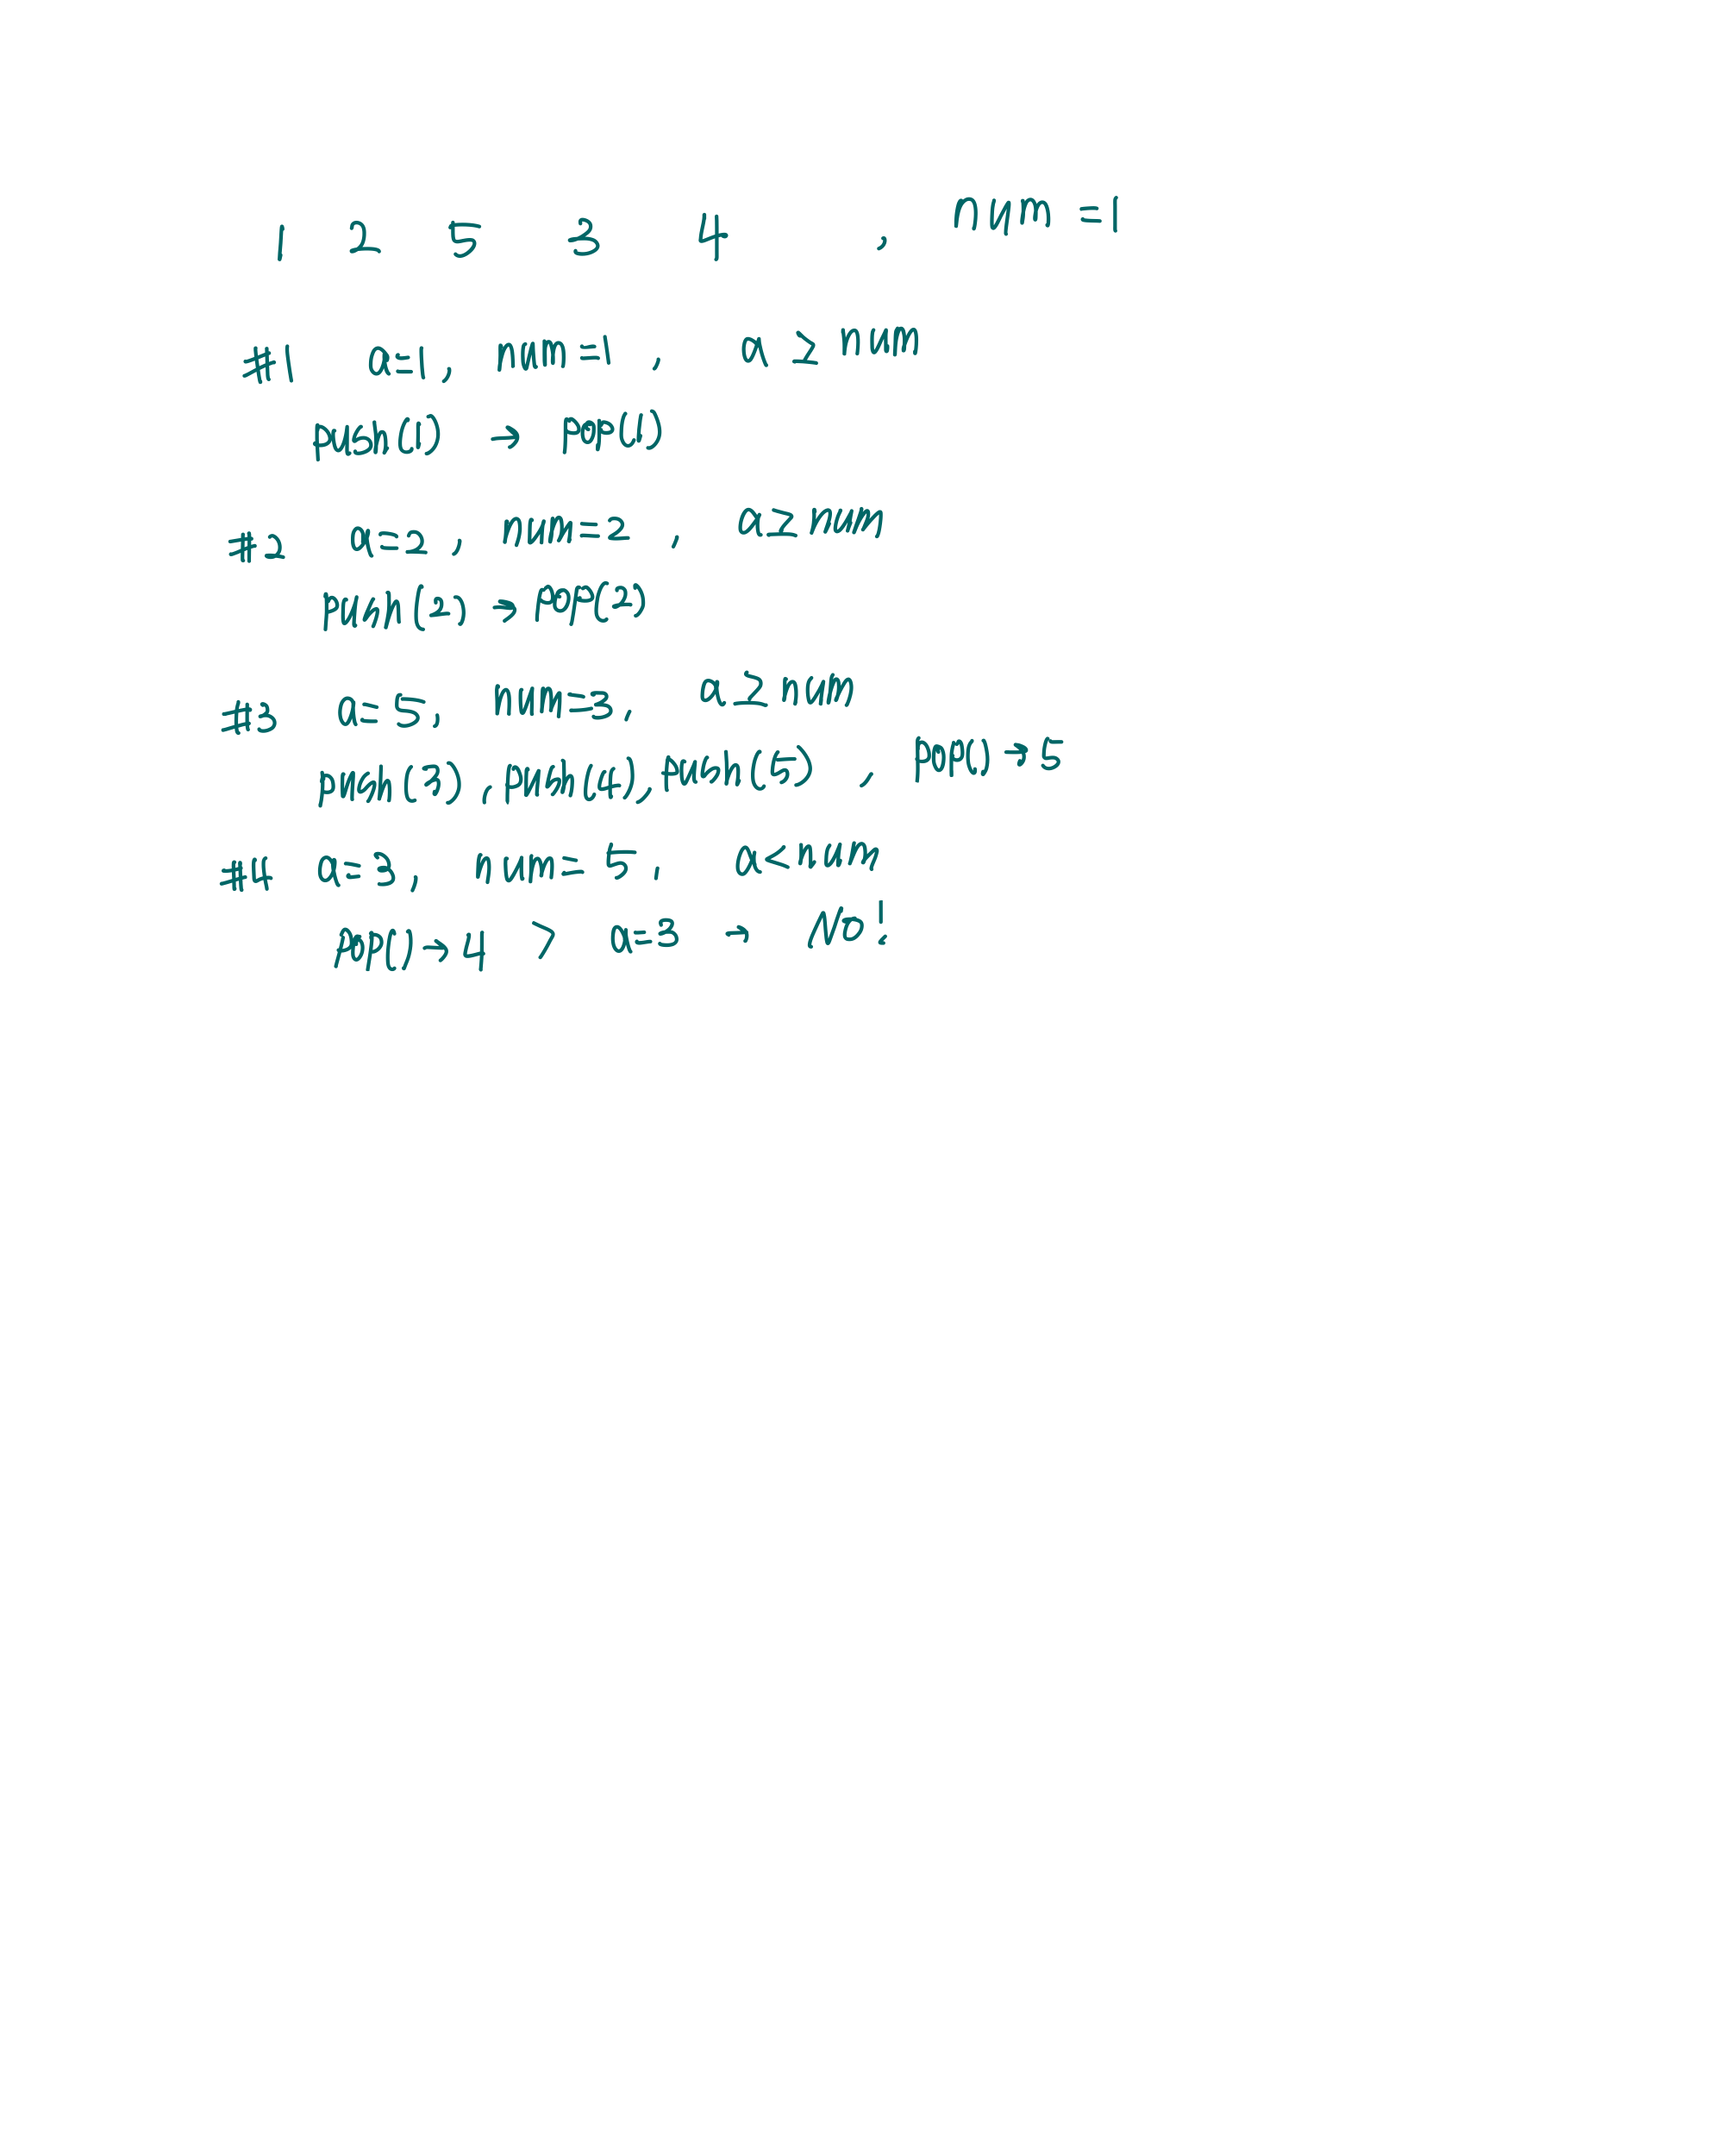 1 2 5 3 4 , num =1
#1 a=1, num=1 , a ≥ num
push(1) → pop(1)
#2 a=2, num=2 , a≥num
push(2) → pop(2)
#3 a=5, num=3, a≥num
push(3), push(4), push(5) , pop() → 5
#4 a=3, num=5, a<num
pop() → 4 > a=3 → No!